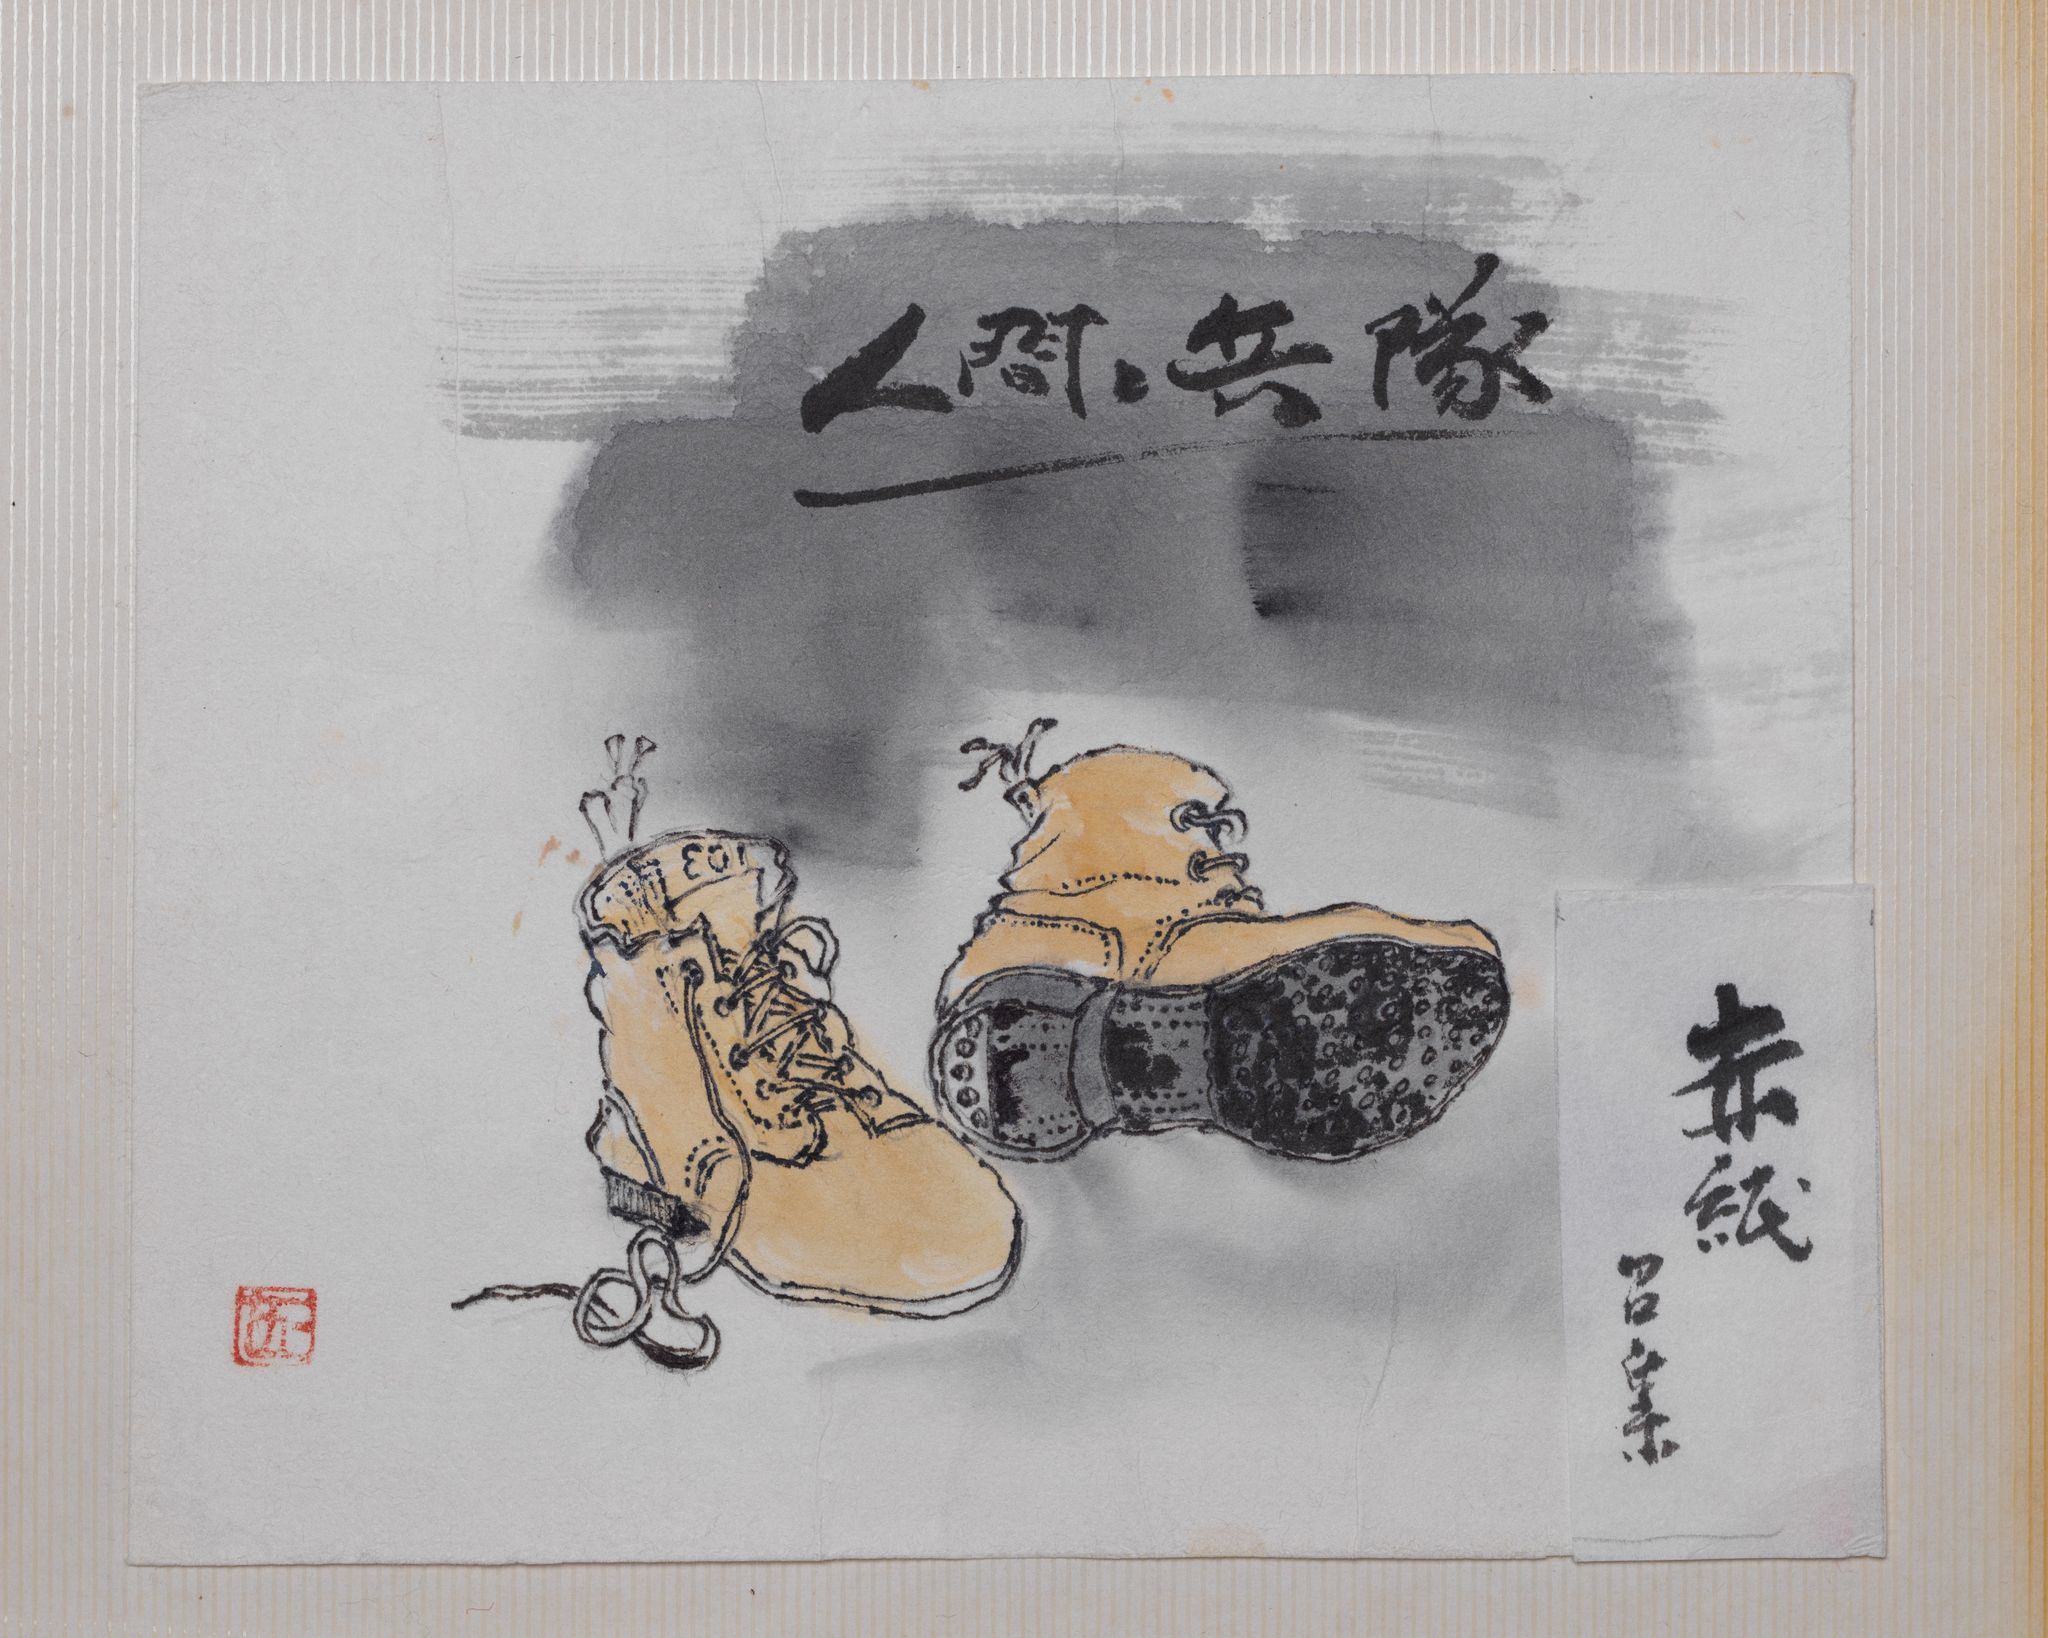 人間・兵隊
103
赤紙
召集